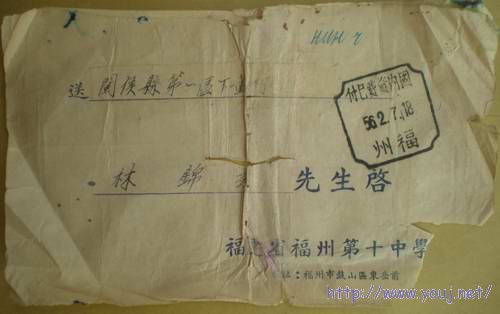 送 閩侯縣第一區下
國內郵資已付
56.2.7.18
福州
林錦 先生啓
福建省福州第十中學
址：福州市鼓山區東岳前
http://www.youj.net/